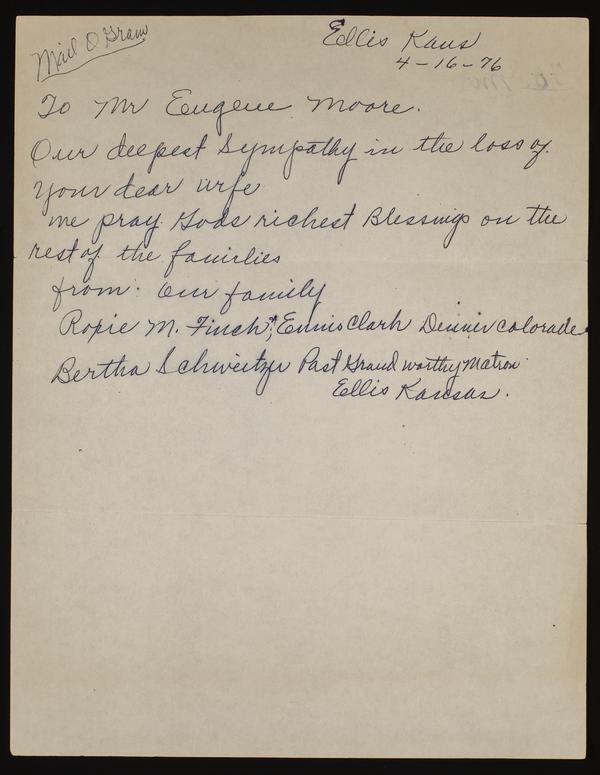 Mail O Gram
Ellis Kans
4-16-76
To Mr Eugene Moore.
Our deepest Sympathy in the loss of
your dear wife
we pray Gods richest Blessings on the
rest of the families
from: our family
Ropie M. Finch, Ennis Clark Denver Colorado
Bertha Schweitzer Past Grand worthy Matron
Ellis Kansas.